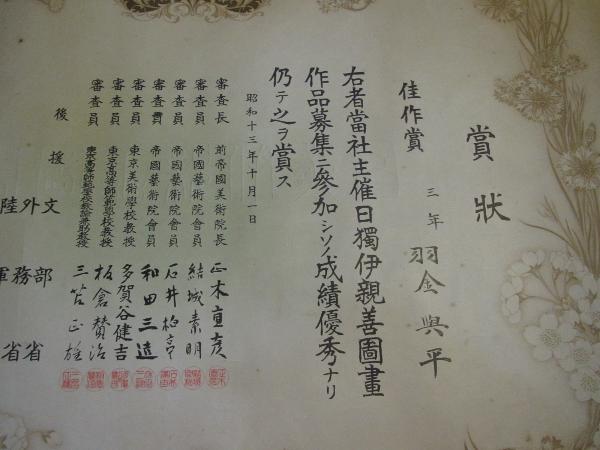 賞狀
佳作賞 三年 羽金與平
右者當社主催日獨伊親善圖畫
作品募集ニ參加シソノ成績優秀ナリ
仍テ之ヲ賞ス
昭和十三年十月一日
審査長 前帝國美術院長 正木直彦
審査員 帝國藝術院會員 結城素明
審査員 帝國藝術院會員 石井柏亭
審査員 東京美術學校教授 和田三造
審査員 東京高等師範學校教授 多賀谷健吉
審査員 東京高等師範學校教諭兼助教授 板倉賛治
三苫正雄
後援 文部省
外務省
陸軍省